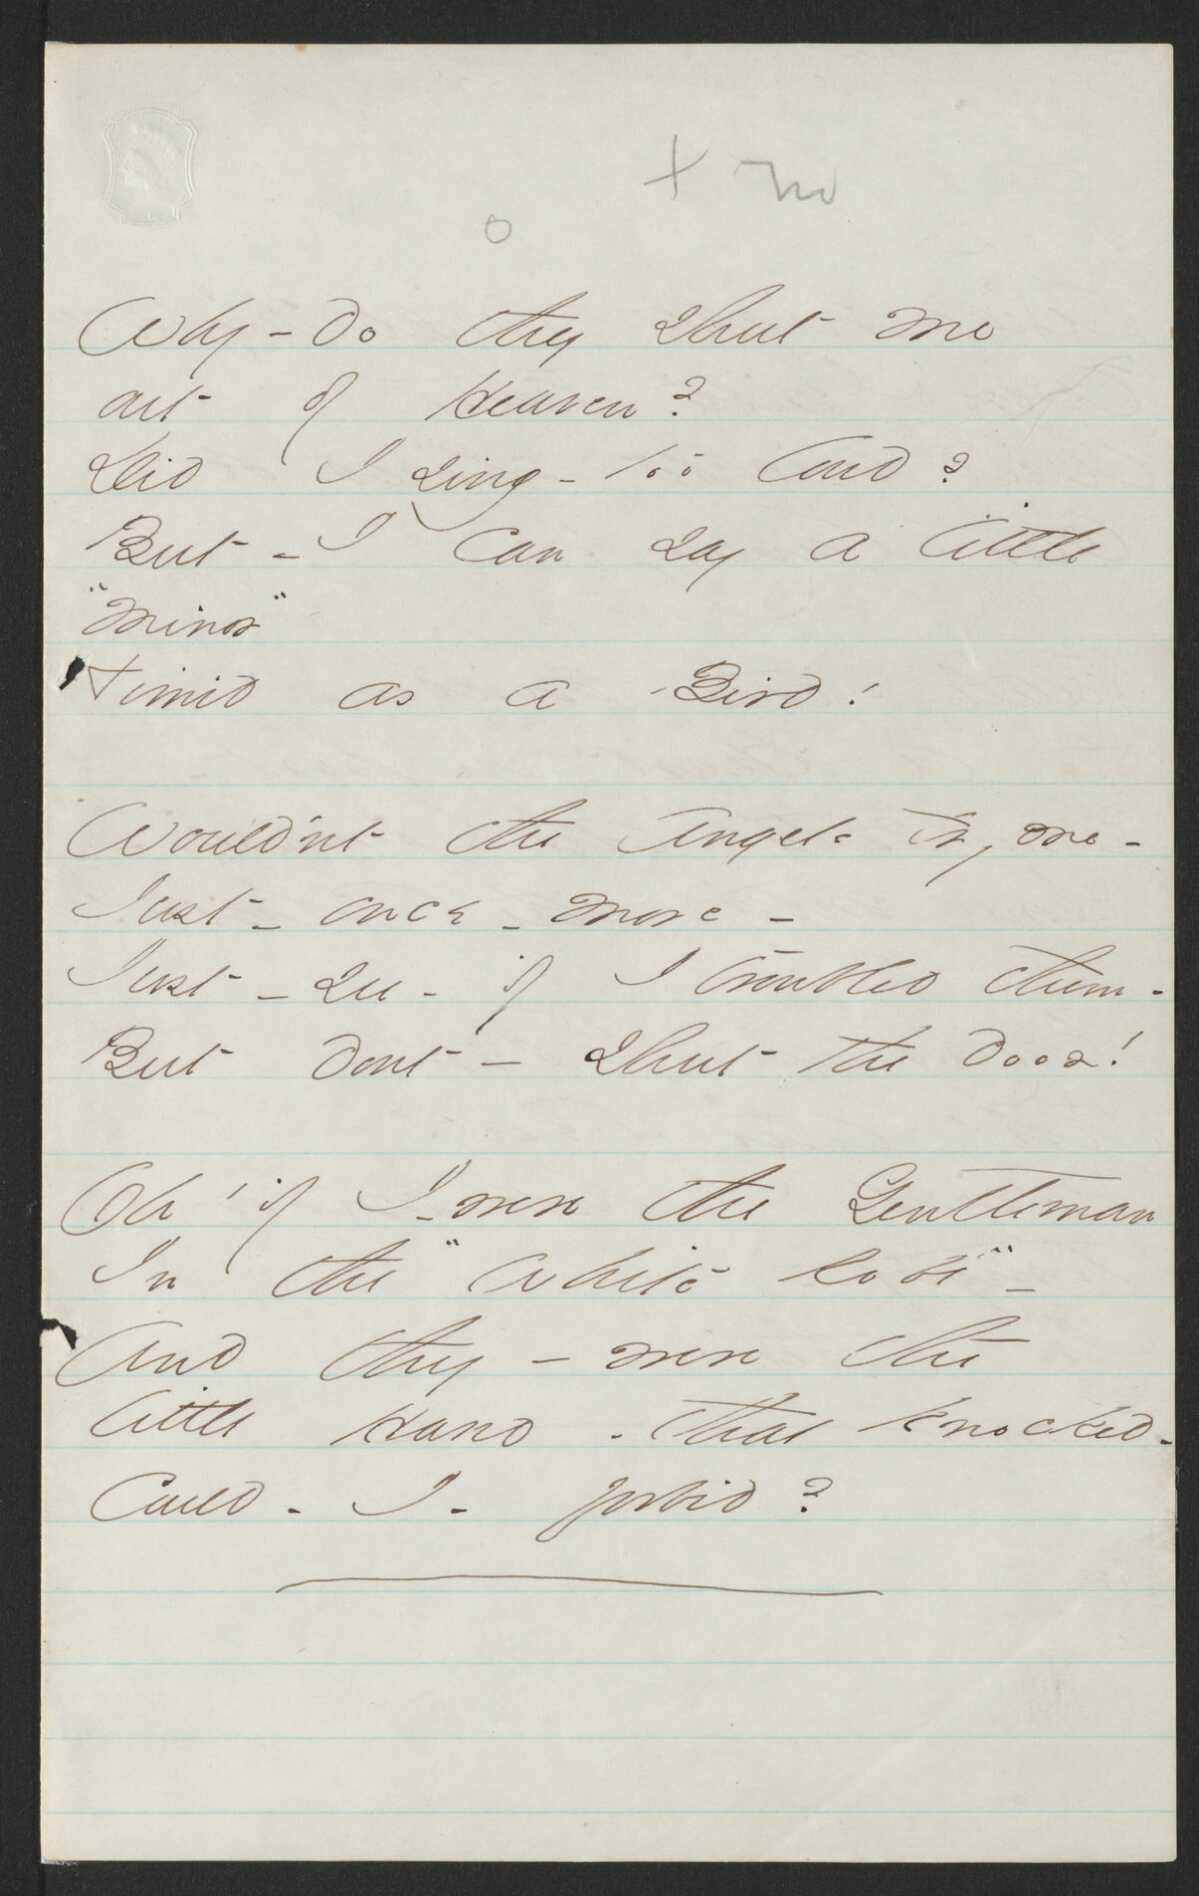 Why - do they shut me
out of Heaven?
Did I sing - too loud?
But - I can say a little
"minor"
Timid as a Bird!
Would'nt the Angels try me -
Just - once - more -
Just - see - if I troubled them -
But dont - shut the door!
Oh' if I - were the Gentleman
In the "White Robe" -
And they - were the
little Hand - that knocked -
Could - I - forbid?